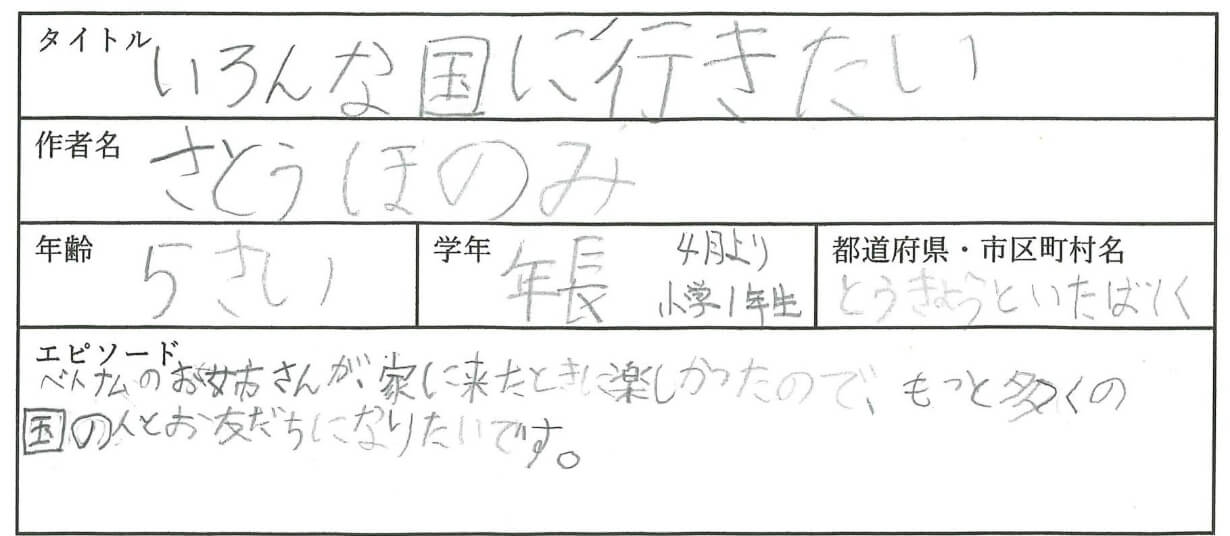 タイトル いろんな国に行きたい
作者名 さとうほのみ
年齢 5さい 学年 年長 4月より 小学1年生 都道府県・市区町村名 とうきょうといたばしく
エピソード
ベトナムのお姉さんが、家に来たときに楽しかったので、もっと多くの
国の人とお友だちになりたいです。